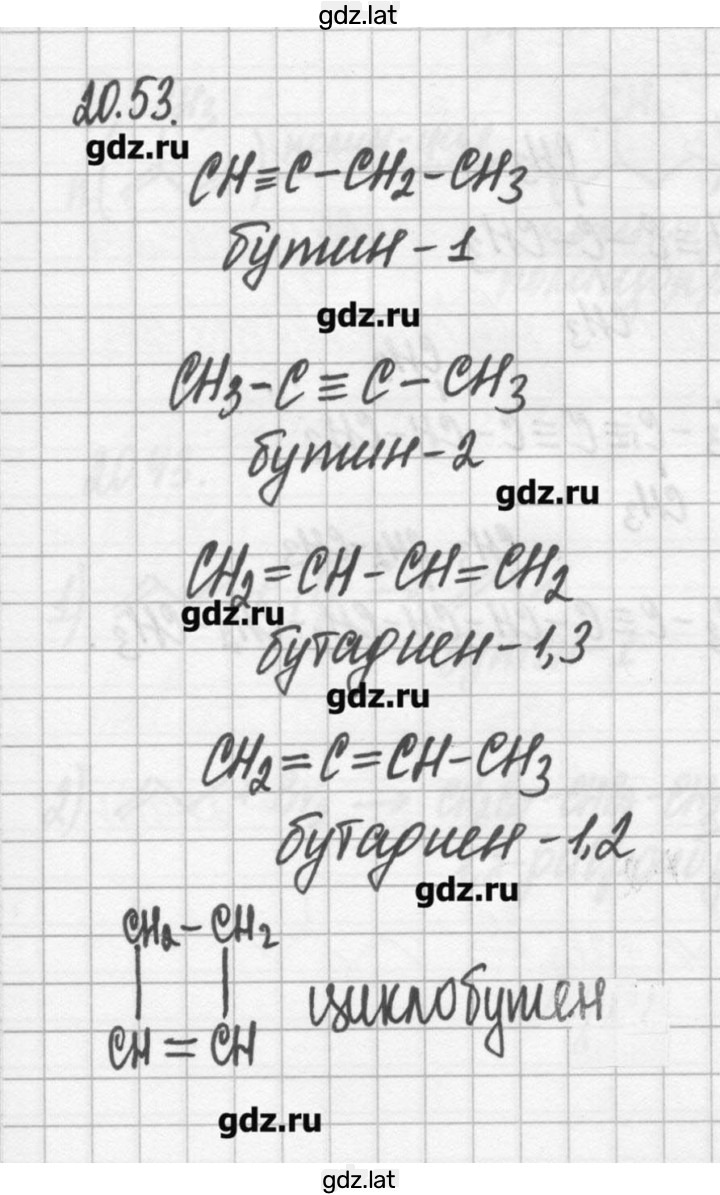 gdz.lat
20.53.
gdz.ru
CH≡C-CH2-CH3
бутин-1
gdz.ru
CH3-C≡C-CH3
бутин-2
gdz.ru
CH2=CH-CH=CH2
gdz.ru
бутадиен-1,3
gdz.ru
CH2=C=CH-CH3
бутадиен-1,2
gdz.ru
CH2-CH2
| |
CH=CH
циклобутен
gdz.ru
gdz.lat